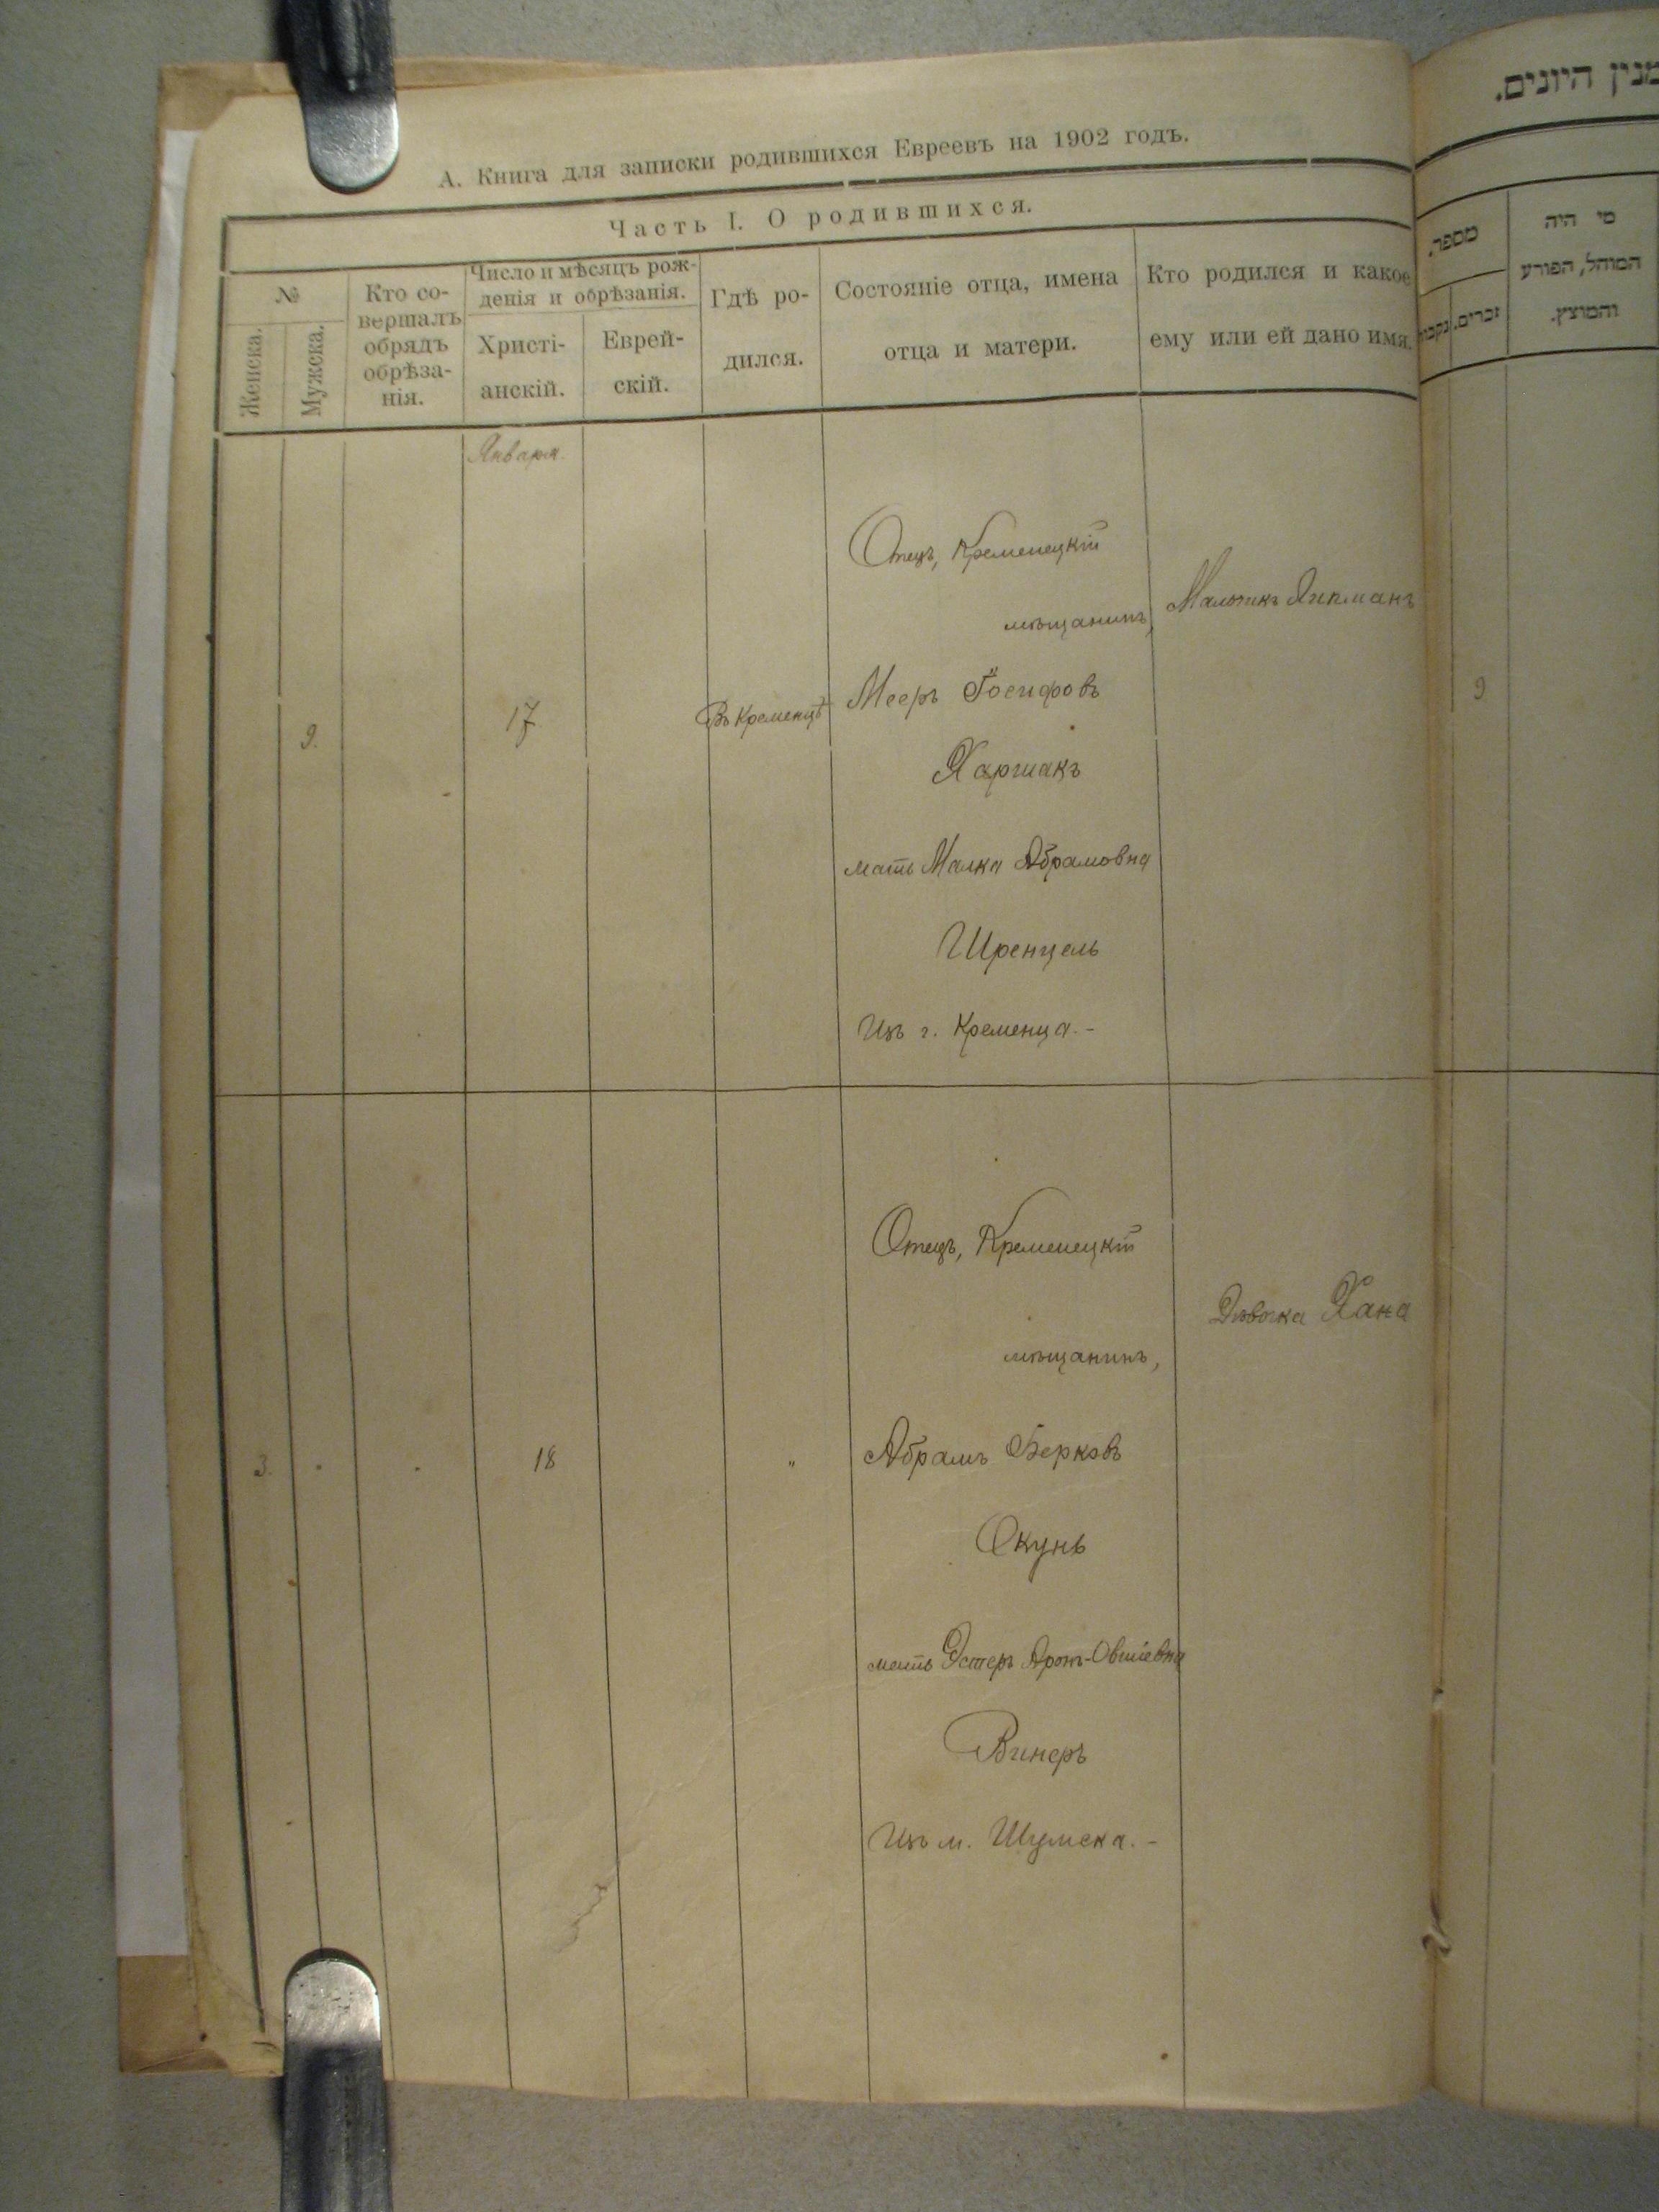 А. Книга для записки родившихся Евреевъ на 1902 годъ.
Часть I. О родившихся.
№
Женска.
Мужска.
Кто со-
вершалъ
обрядъ
обрѣза-
нія.
Число и мѣсяцъ рож-
денія и обрѣзанія.
Христі-
анскій.
Еврей-
скій.
Гдѣ ро-
дился.
Состояніе отца, имена
отца и матери.
Кто родился и какое
ему или ей дано имя.
Января
9.
17
Въ Кременцѣ
Отецъ, Кременецкій
мѣщанинъ,
Мееръ Іосифовъ
Харшакъ
мать Малка Абрамовна
Шренцель
Изъ г. Кременца.-
Мальчикъ
3.
18
"
Отецъ, Кременецкій
мѣщанинъ,
Абрамъ Берковъ
Окунь
мать Эстеръ Аронъ-Овшіевна
Винеръ
Изъ м. Шумска.-
Дѣвочка Хана
היונים.
מספר.
זכרים.
מי היה
המוהל, הפורע
והמוצץ.
9